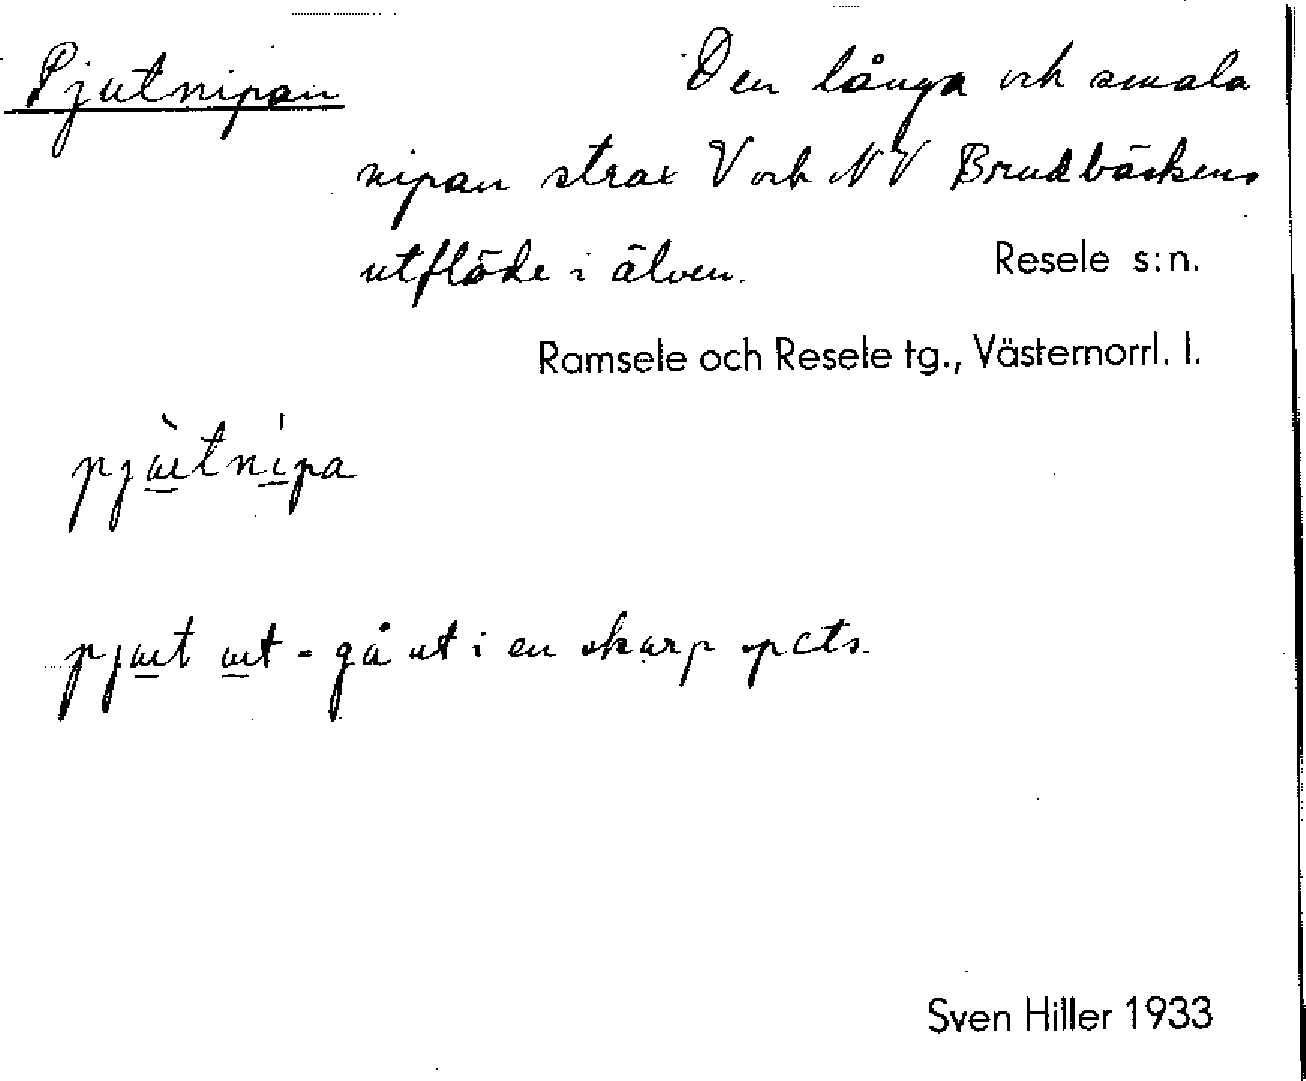 Pjutnipan Den långa och smala
nipan strax V och NV Brudbäckens
utflöde i älven. Resele s:n.
Ramsele och Resele tg., Västernorrl. l.
pjùtnípa
pjut ut - gå ut i en skarp spets.
Sven Hiller 1933